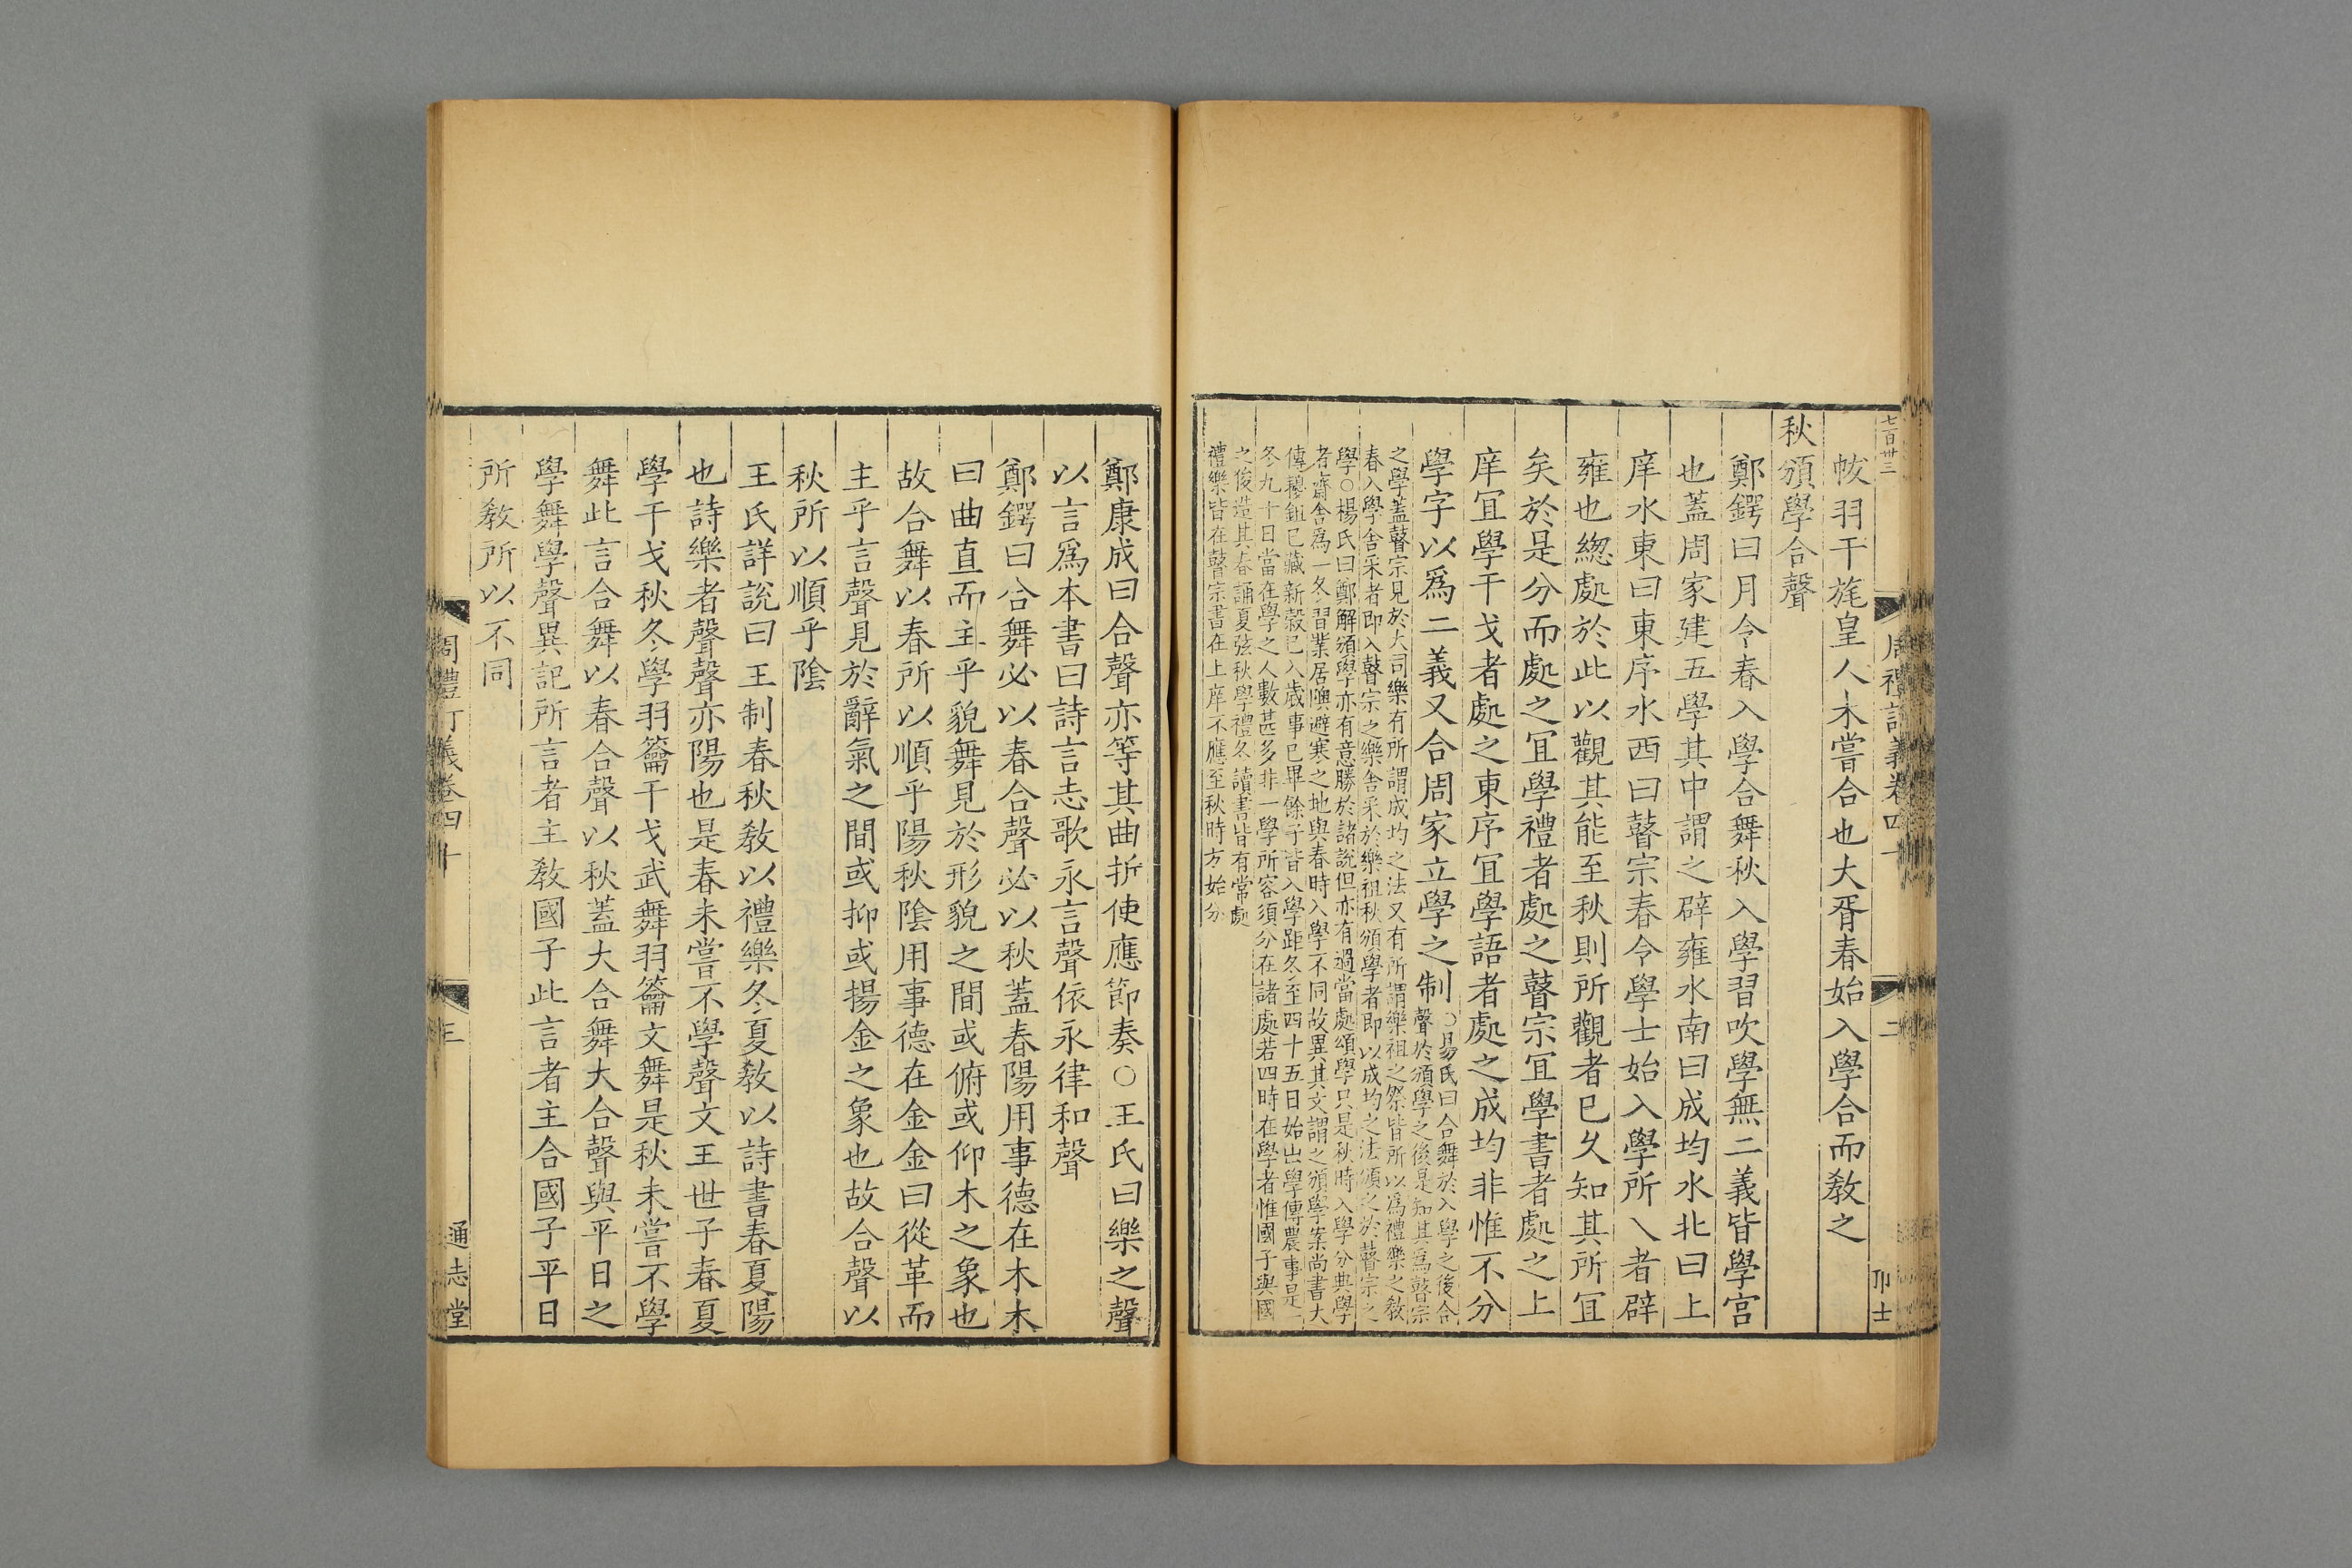 七百卅三
周禮訂義卷四十
二
卭士
帗羽干旄皇人未嘗合也大胥春始入學合而教之
秋頒學合聲
鄭鍔曰月令春入學合舞秋入學習吹學無二義皆學宫
也蓋周家建五學其中謂之辟雍水南曰成均水北曰上
庠水東曰東序水西曰瞽宗春令學士始入學所入者辟
雍也緫處於此以觀其能至秋則所觀者已久知其所冝
矣於是分而處之冝學禮者處之瞽宗冝學書者處之上
庠冝學干戈者處之東序冝學語者處之成均非惟不分
學字以爲二義又合周家立學之制
○易氏曰合舞於入學之後合
聲於頒學之後是知其爲瞽宗
之學蓋瞽宗見於大司樂有所謂成均之法又有所謂樂祖之祭皆所以爲禮樂之教
春入學舎采者即入瞽宗之樂舎采於樂祖秋頒學者即以成均之法頒之於瞽宗之
學○楊氏曰鄭解頒學亦有意勝於諸說但亦有過當處頒學只是秋時入學分典學
者齋舎爲一冬習業居燠避寒之地與春時入學不同故異其文謂之頒學案尚書大
傳耰鉏已藏新穀已入歲事已畢餘子皆入學距冬至四十五日始出學傳農事是一
冬九十日當在學之人數甚多非一學所容須分在諸處若四時在學者惟國子與國
之俊造其春誦夏弦秋學禮冬讀書皆有常處
禮樂皆在瞽宗書在上庠不應至秋時方始分
鄭康成曰合聲亦等其曲折使應節奏○王氏曰樂之聲
以言爲本書曰詩言志歌永言聲依永律和聲
鄭鍔曰合舞必以春合聲必以秋蓋春陽用事德在木木
曰曲直而主乎貌舞見於形貌之間或俯或仰木之象也
故合舞以春所以順乎陽秋陰用事德在金金曰從革而
主乎言聲見於辭氣之間或抑或揚金之象也故合聲以
秋所以順乎陰
王氏詳說曰王制春秋教以禮樂冬夏教以詩書春夏陽
也詩樂者聲聲亦陽也是春未嘗不學聲文王世子春夏
學干戈秋冬學羽籥干戈武舞羽籥文舞是秋未嘗不學
舞此言合舞以春合聲以秋蓋大合舞大合聲與平日之
學舞學聲異記所言者主教國子此言者主合國子平日
所教所以不同
周禮訂義卷四十
三
通志堂